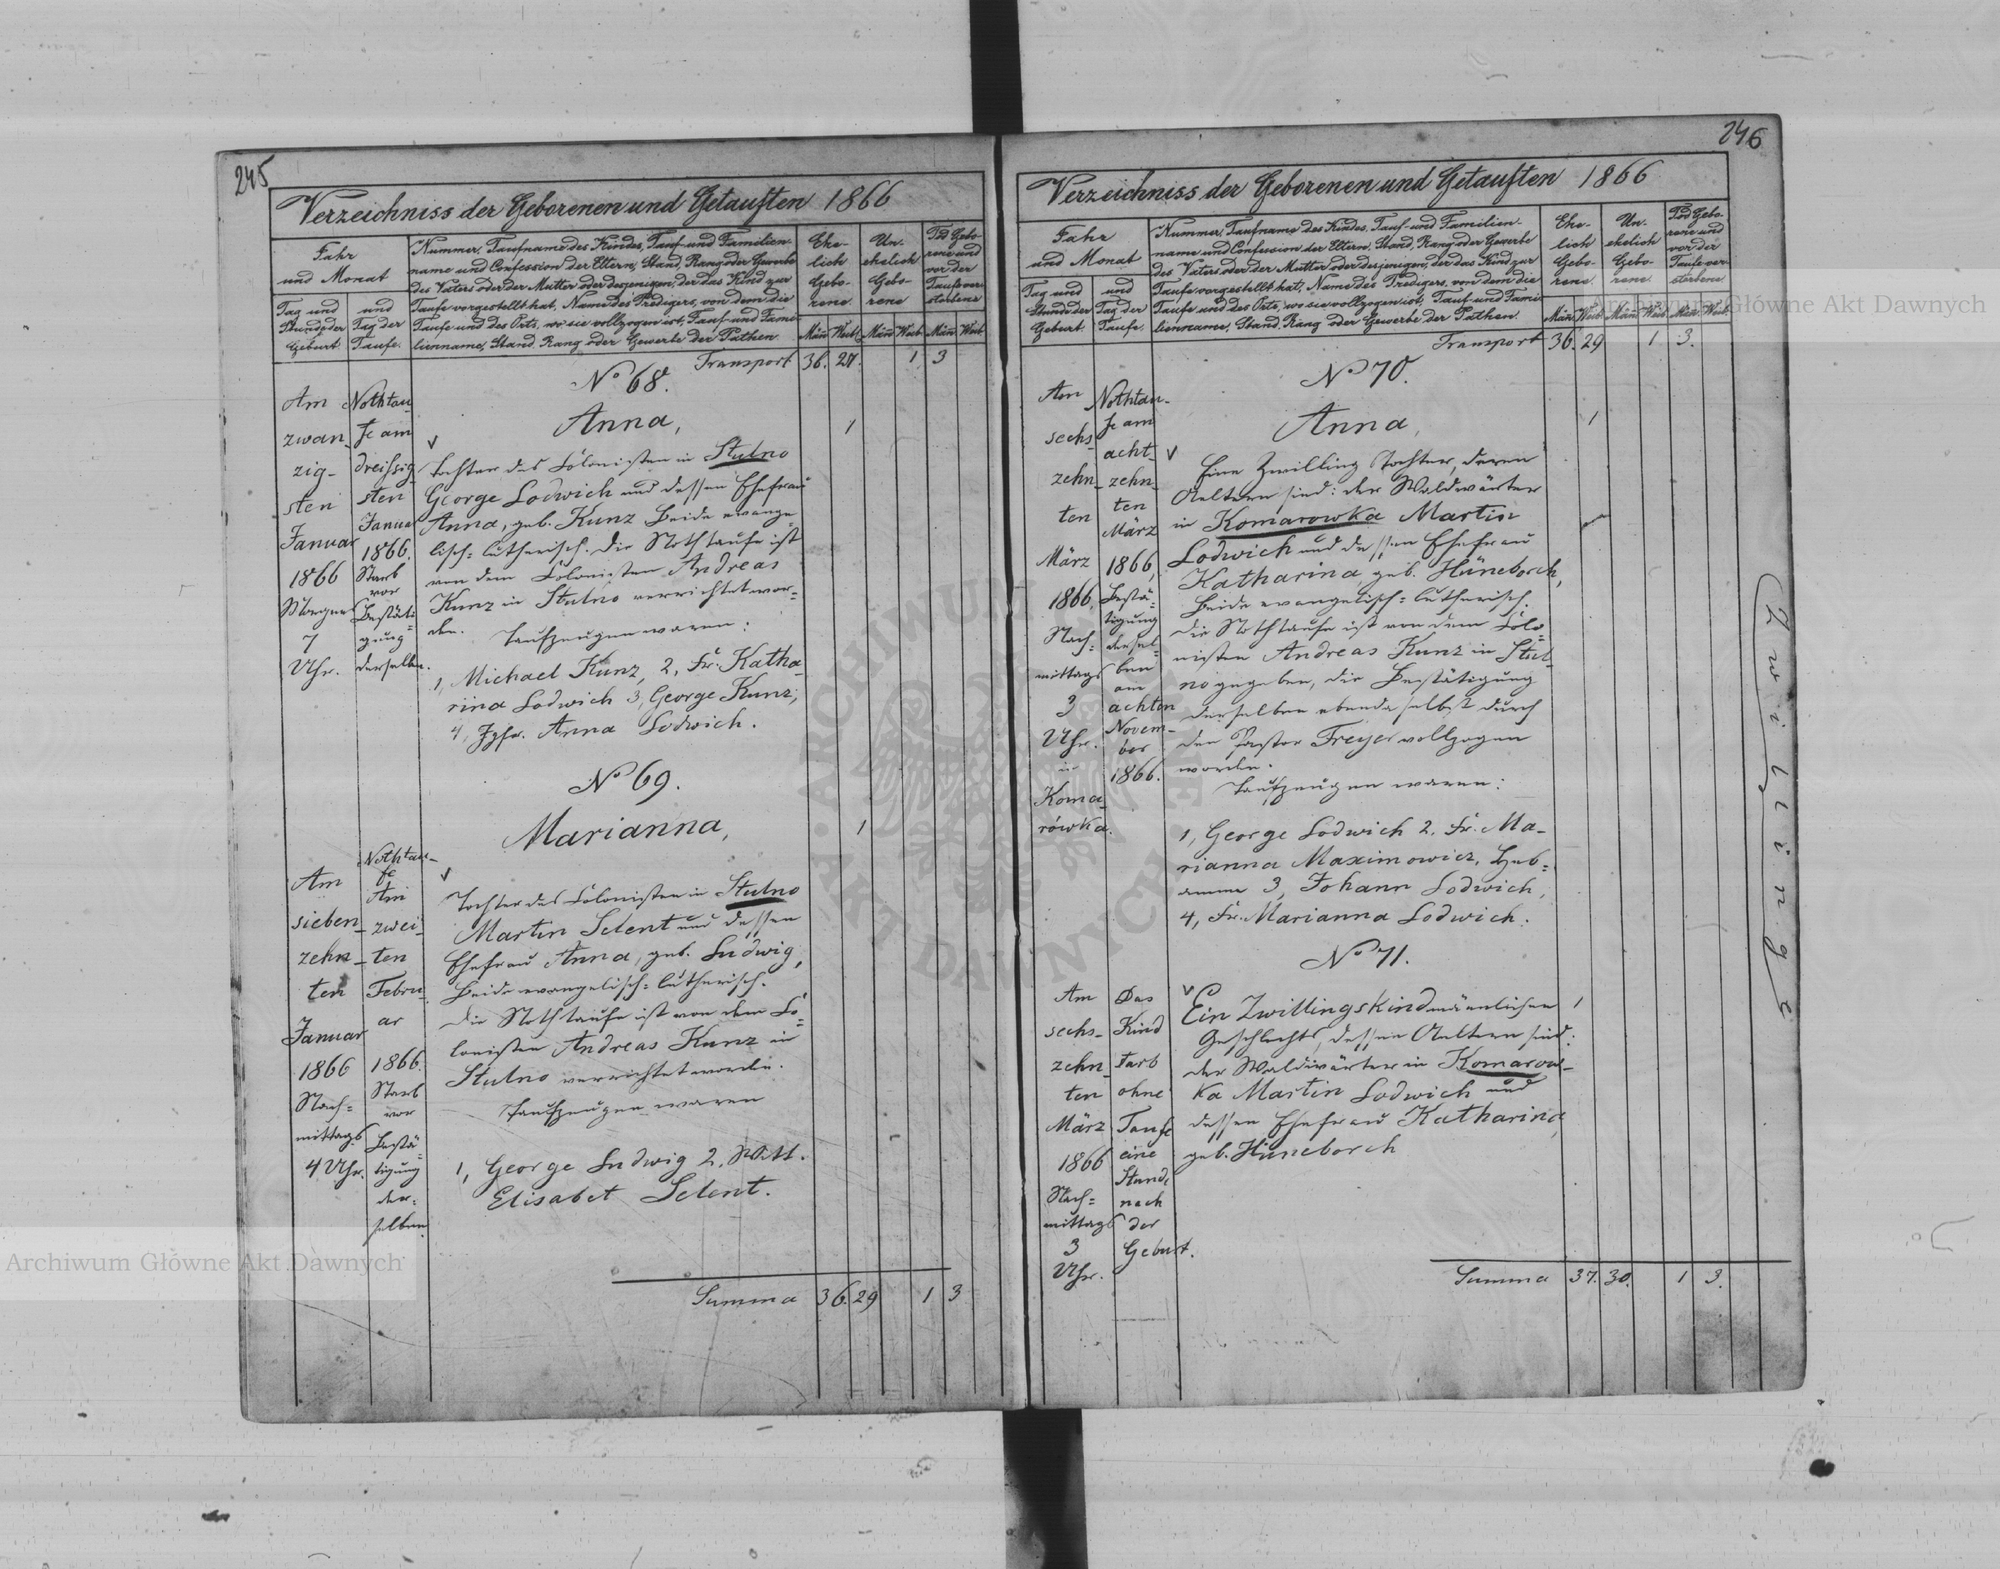 245
Verzeichniss der Geborenen und Getauften 1866
Jahr
und Monat
Tag und
Stunde der
Geburt.
und
Tag der
Taufe.
Nummer, Taufname des Kindes, Tauf- und Familien-
name und Confession der Eltern, Stand, Rang oder Gewerbe
des Vaters oder der Mutter oder desjenigen, der das Kind zur
Taufe vorgestellt hat, Name des Predigers, von dem die
Taufe und des Orts, wo sie vollzogen ist, Tauf- und Fami-
lienname, Stand, Rang oder Gewerbe der Pathen.
Ehe-
lich
Gebo-
rene.
Un-
ehelich
Gebo-
rene
Tod Gebo-
rene und
vor der
Taufe ver-
storbene
Män. Weib. Män. Weib. Män. Weib.
Transport 36. 27. 1. 3
No 68.
Am
zwan-
zig-
sten
Januar
1866
Morgens
7
Uhr.
Nothtau-
fe am
dreissig-
sten
Januar
1866.
Starb
vor
Bestäti-
gung
derselben.
Anna, 1
Tochter des Colonisten in Stulno
George Lodwich und dessen Ehefrau
Anna, geb. Kunz Beide evange-
lisch=lutherisch. Die Nothtaufe ist
von dem Colonisten Andreas
Kunz in Stulno verrichtet wor-
den. Taufzeugen waren:
1, Michael Kunz, 2, Fr. Katha-
rina Lodwich 3, George Kunz,
4, Jgfr. Anna Lodwich.
No 69.
Am
sieben-
zehn-
ten
Januar
1866
Nach=
mittags
4 Uhr.
Nothtau-
fe
Am
zwei-
ten
Febru-
ar
1866.
Starb
vor
Bestä-
tigung
der=
selben.
Marianna, 1
Tochter des Colonisten in Stulno
Martin Selent und dessen
Ehefrau Anna, geb. Ludwig,
Beide evangelisch=lutherisch.
Die Nothtaufe ist von dem Co-
lonisten Andreas Kunz in
Stulno verrichtet worden.
Taufzeugen waren
1, George Ludwig 2, Witt.
Elisabet Selent.
Summa 36. 29 1 3
246
Verzeichniss der Geborenen und Getauften 1866
Jahr
und Monat
Tag und
Stunde der
Geburt.
und
Tag der
Taufe.
Nummer, Taufname des Kindes, Tauf- und Familien-
name und Confession der Eltern, Stand, Rang oder Gewerbe
des Vaters oder der Mutter oder desjenigen, der das Kind zur
Taufe vorgestellt hat, Name des Predigers, von dem die
Taufe und des Orts, wo sie vollzogen ist, Tauf- und Fami-
lienname, Stand, Rang oder Gewerbe der Pathen.
Ehe-
lich
Gebo-
rene.
Un-
ehelich
Gebo-
rene.
Tod Gebo-
rene und
vor der
Taufe ver-
storbene
Män. Weib. Män. Weib. Män. Weib.
Transport 36. 29 1. 3.
No 70.
Am
sechs-
zehn-
ten
März
1866
Nach=
mittags
3
Uhr.
in
Koma-
rówka.
Nothtau-
fe am
acht-
zehn-
ten
März
1866,
Bestä=
tigung
dersel-
ben
am
achten
Novem-
ber
1866.
Anna, 1
Eine Zwilling Tochter, deren
Aeltern sind: der Waldwärter
in Komarowka Martin
Lodwich und dessen Ehefrau
Katharina, geb. Hüneborch,
Beide evangelisch=lutherisch.
Die Nothtaufe ist von dem Colo-
nisten Andreas Kunz in Stul-
no gegeben, die Bestätigung
derselben ebendaselbst durch
den Pastor Freyer vollzogen
worden.
Taufzeugen waren:
1, George Lodwich 2. Fr. Ma-
rianna Maximowicz, Heb=
amme 3, Johann Lodwich,
4, Fr. Marianna Lodwich.
No 71.
Am
sechs-
zehn-
ten
März
1866
Nach=
mittags
3
Uhr.
Das
Kind
starb
ohne
Taufe
eine
Stunde
nach
der
Geburt.
Ein Zwillingskind männlichen 1
Geschlechts, dessen Aeltern sind:
der Waldwärter in Komarow-
ka Martin Lodwich und
dessen Ehefrau Katharina,
geb. Hüneborch
Summa 37. 30. 1 3.
Zwillinge
Archiwum Główne Akt Dawnych
Archiwum Główne Akt Dawnych